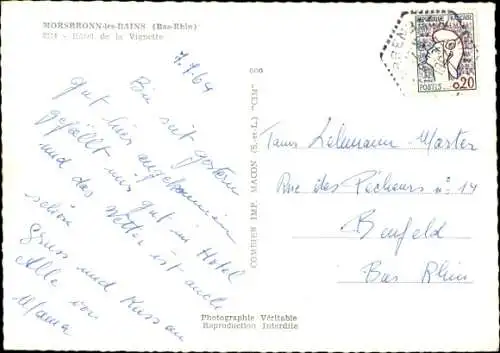 MORSBRONN-les-BAINS (Bas-Rhin)
Hôtel de la Vignette
7.7.64
Bin seit gestern
gut hier angekommen
gefällt mir gut im Hotel
und das Wetter ist auch
schön
Gruss und Kuss an
Alle von
Mama
COMBIER IMP. MACON (S.-et-L.) "CIM"
Photographie Véritable
Reproduction Interdite
REPUBLIQUE FRANÇAISE
POSTES
0,20
Lehmann-Master
Rue des Pêcheurs n° 14
Benfeld
Bas Rhin